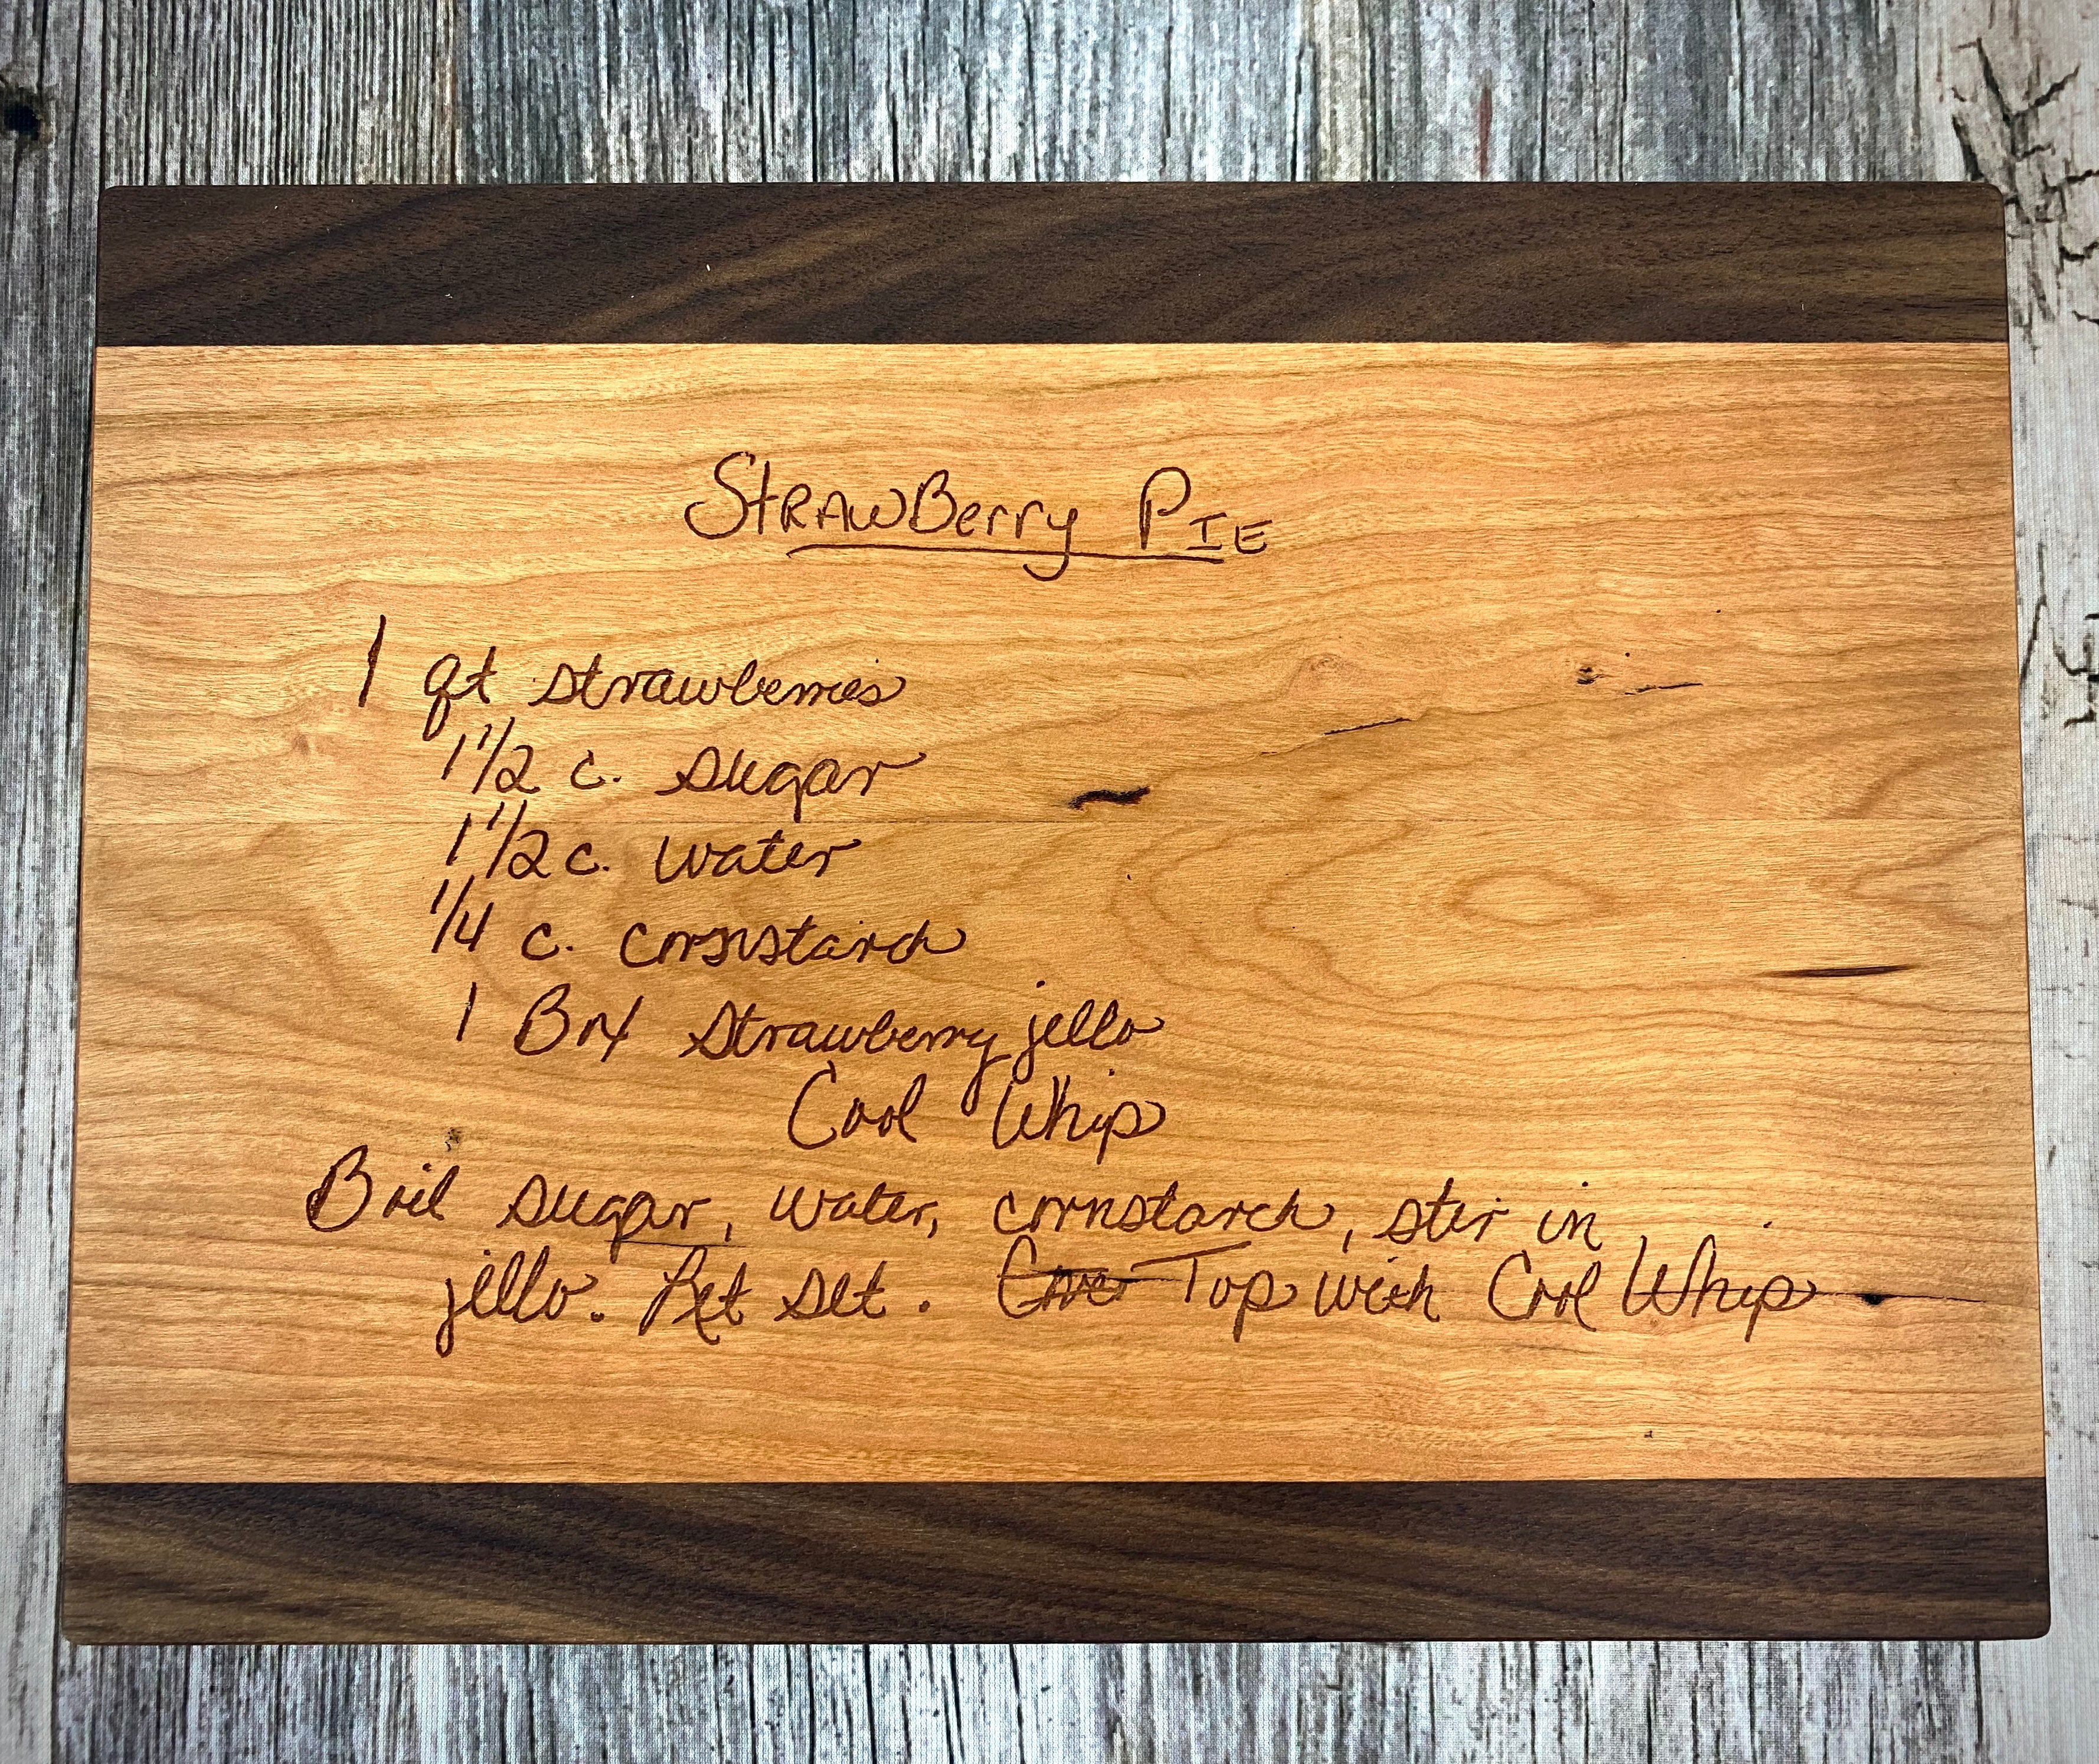 StrawBerry Pie
1 qt strawberries
1 1/2 c. sugar
1 1/2 c. water
1/4 c. cornstarch
1 Box strawberry jello
Cool Whip
Boil sugar, water, cornstarch, stir in
jello. Let set. Cover Top with Cool Whip